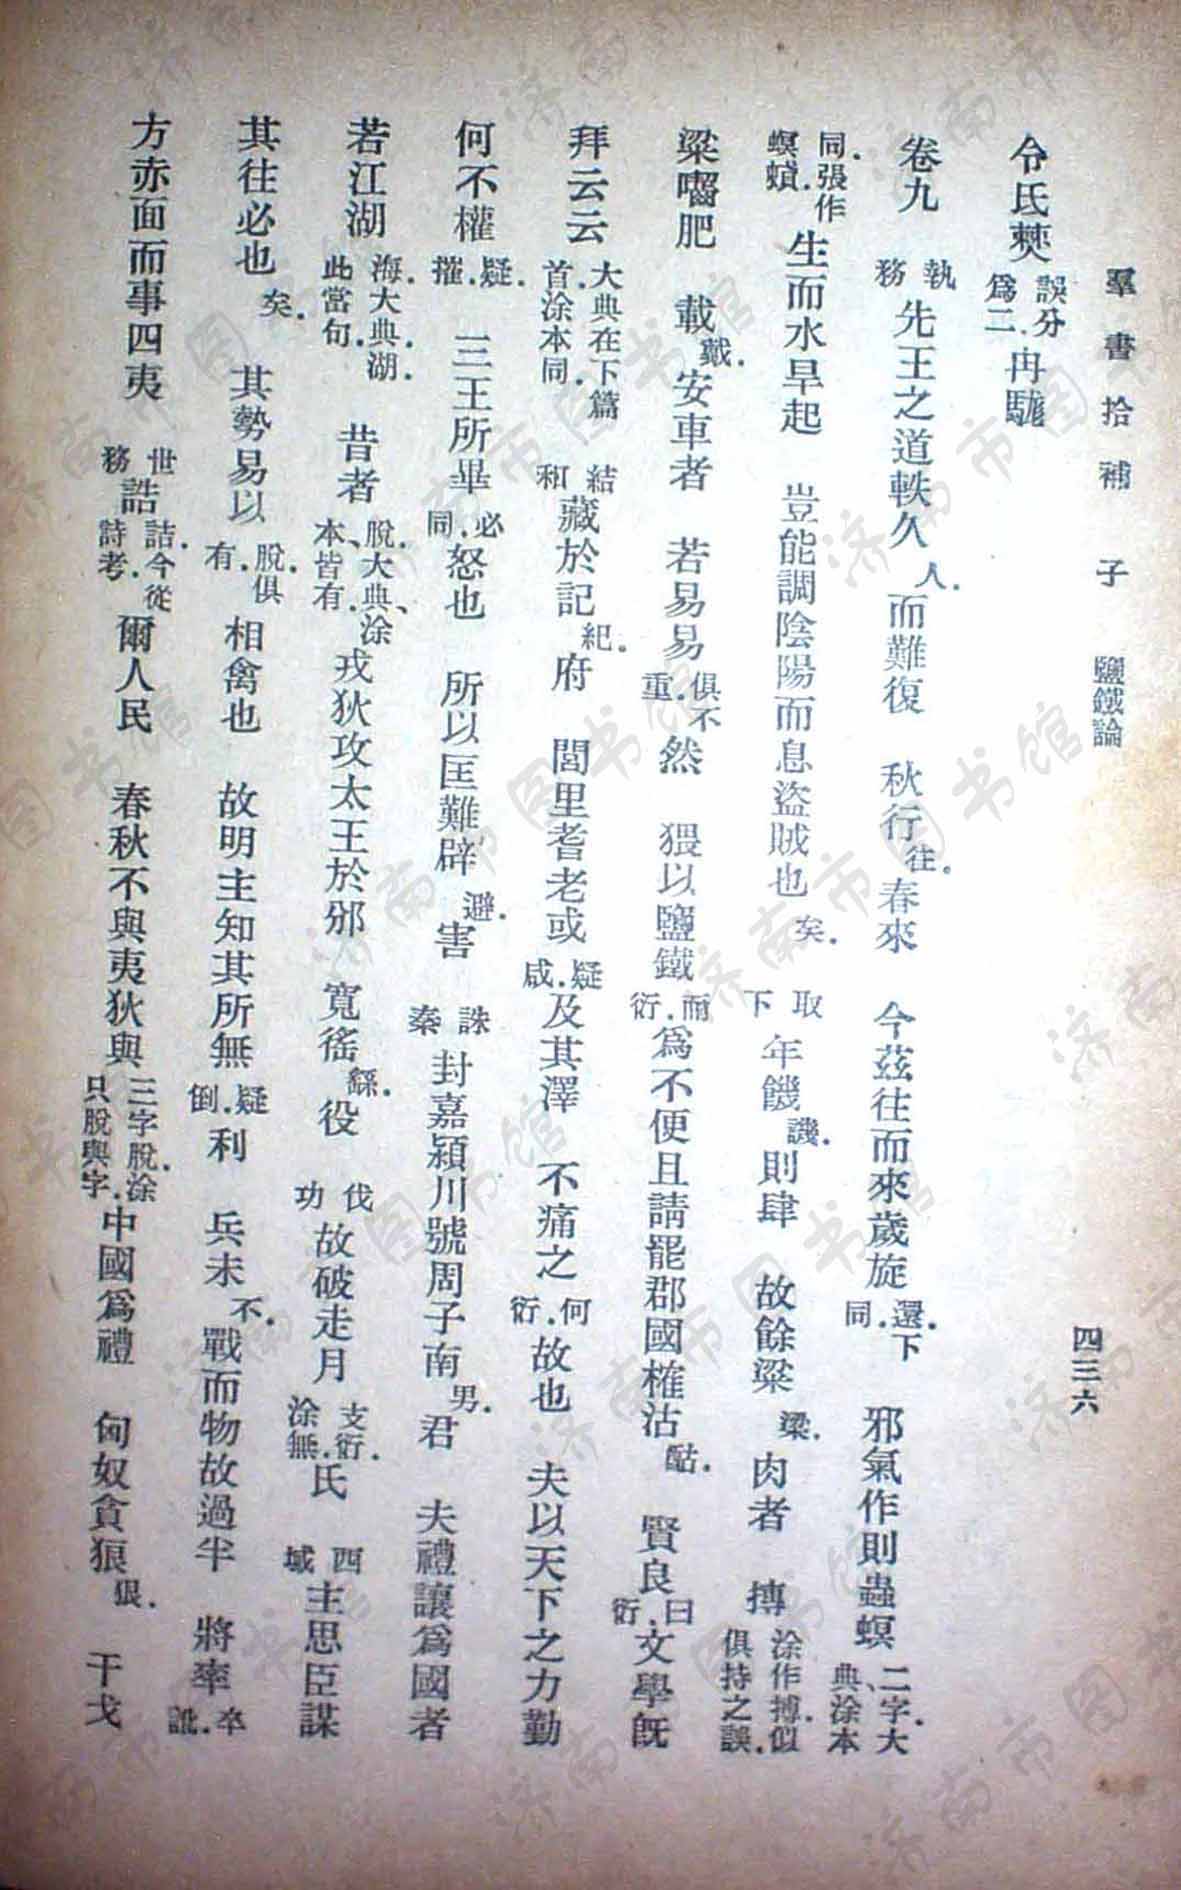 羣書拾補 子 鹽鐵論 四三六
令氏僰 誤分爲二. 冉駹
卷九 執務 先王之道軼久 人. 而難復 秋行 往. 春來 今茲往而來歲旋 還.下同. 邪氣作則蟲螟 二字.大典、涂本
同.張作螟螣. 生而水旱起 豈能調陰陽而息盜賊也 矣. 取下 年饑 譏. 則肆 故餘粱 梁. 肉者 摶 涂作搏.似俱持之誤.
粱嚙肥 載 戴. 安車者 若易易 俱不重. 然 猥以鹽鐵 而.衍. 爲不便且請罷郡國榷沽 酤. 賢良 曰.衍. 文學旣
拜云云 大典在下篇首.涂本同. 結和 藏於記 紀. 府 閭里耆老或 疑.咸. 及其澤 不痛之 何.衍. 故也 夫以天下之力勤
何不權 疑.摧. 三王所畢 必.同. 怒也 所以匡難辟 避. 害 誅秦 封嘉潁川號周子南 男. 君 夫禮讓爲國者
若江湖 海.大典.湖.此當句. 昔者 脫.大典、涂本、皆有. 戎狄攻太王於邠 寬徭 繇. 役 伐功 故破走月 支衍.涂無. 氏 西域 主思臣謀
其往必也 矣. 其勢易以 脫.俱有. 相禽也 故明主知其所無 疑.倒. 利 兵未 不. 戰而物故過半 將率 卒.訛.
方赤面而事四夷 世務 誥 詰.今從詩考. 爾人民 春秋不與夷狄與 三字脫.涂只脫與字. 中國爲禮 匈奴貪狼 狠. 干戈